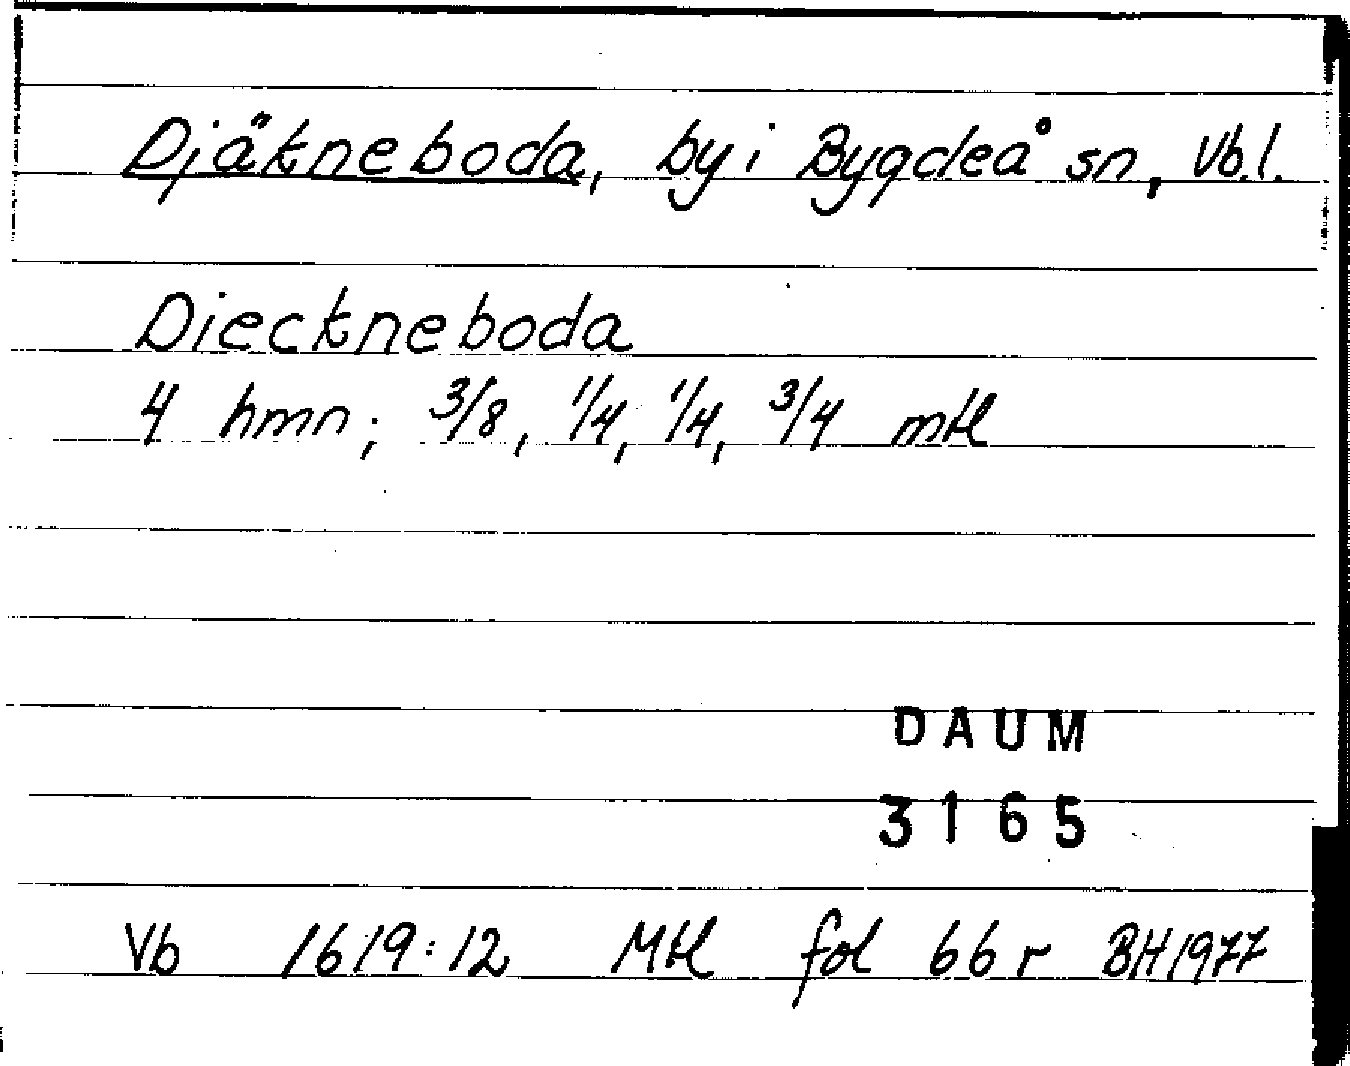 Djäkneboda, by i Bygdeå sn, Vb.l.
Dieckneboda
4 hmn; 3/8, 1/4, 1/4, 3/4 mtl
DAUM
3165
Vb 1619:12 Mtl fol 66 r BH 1977